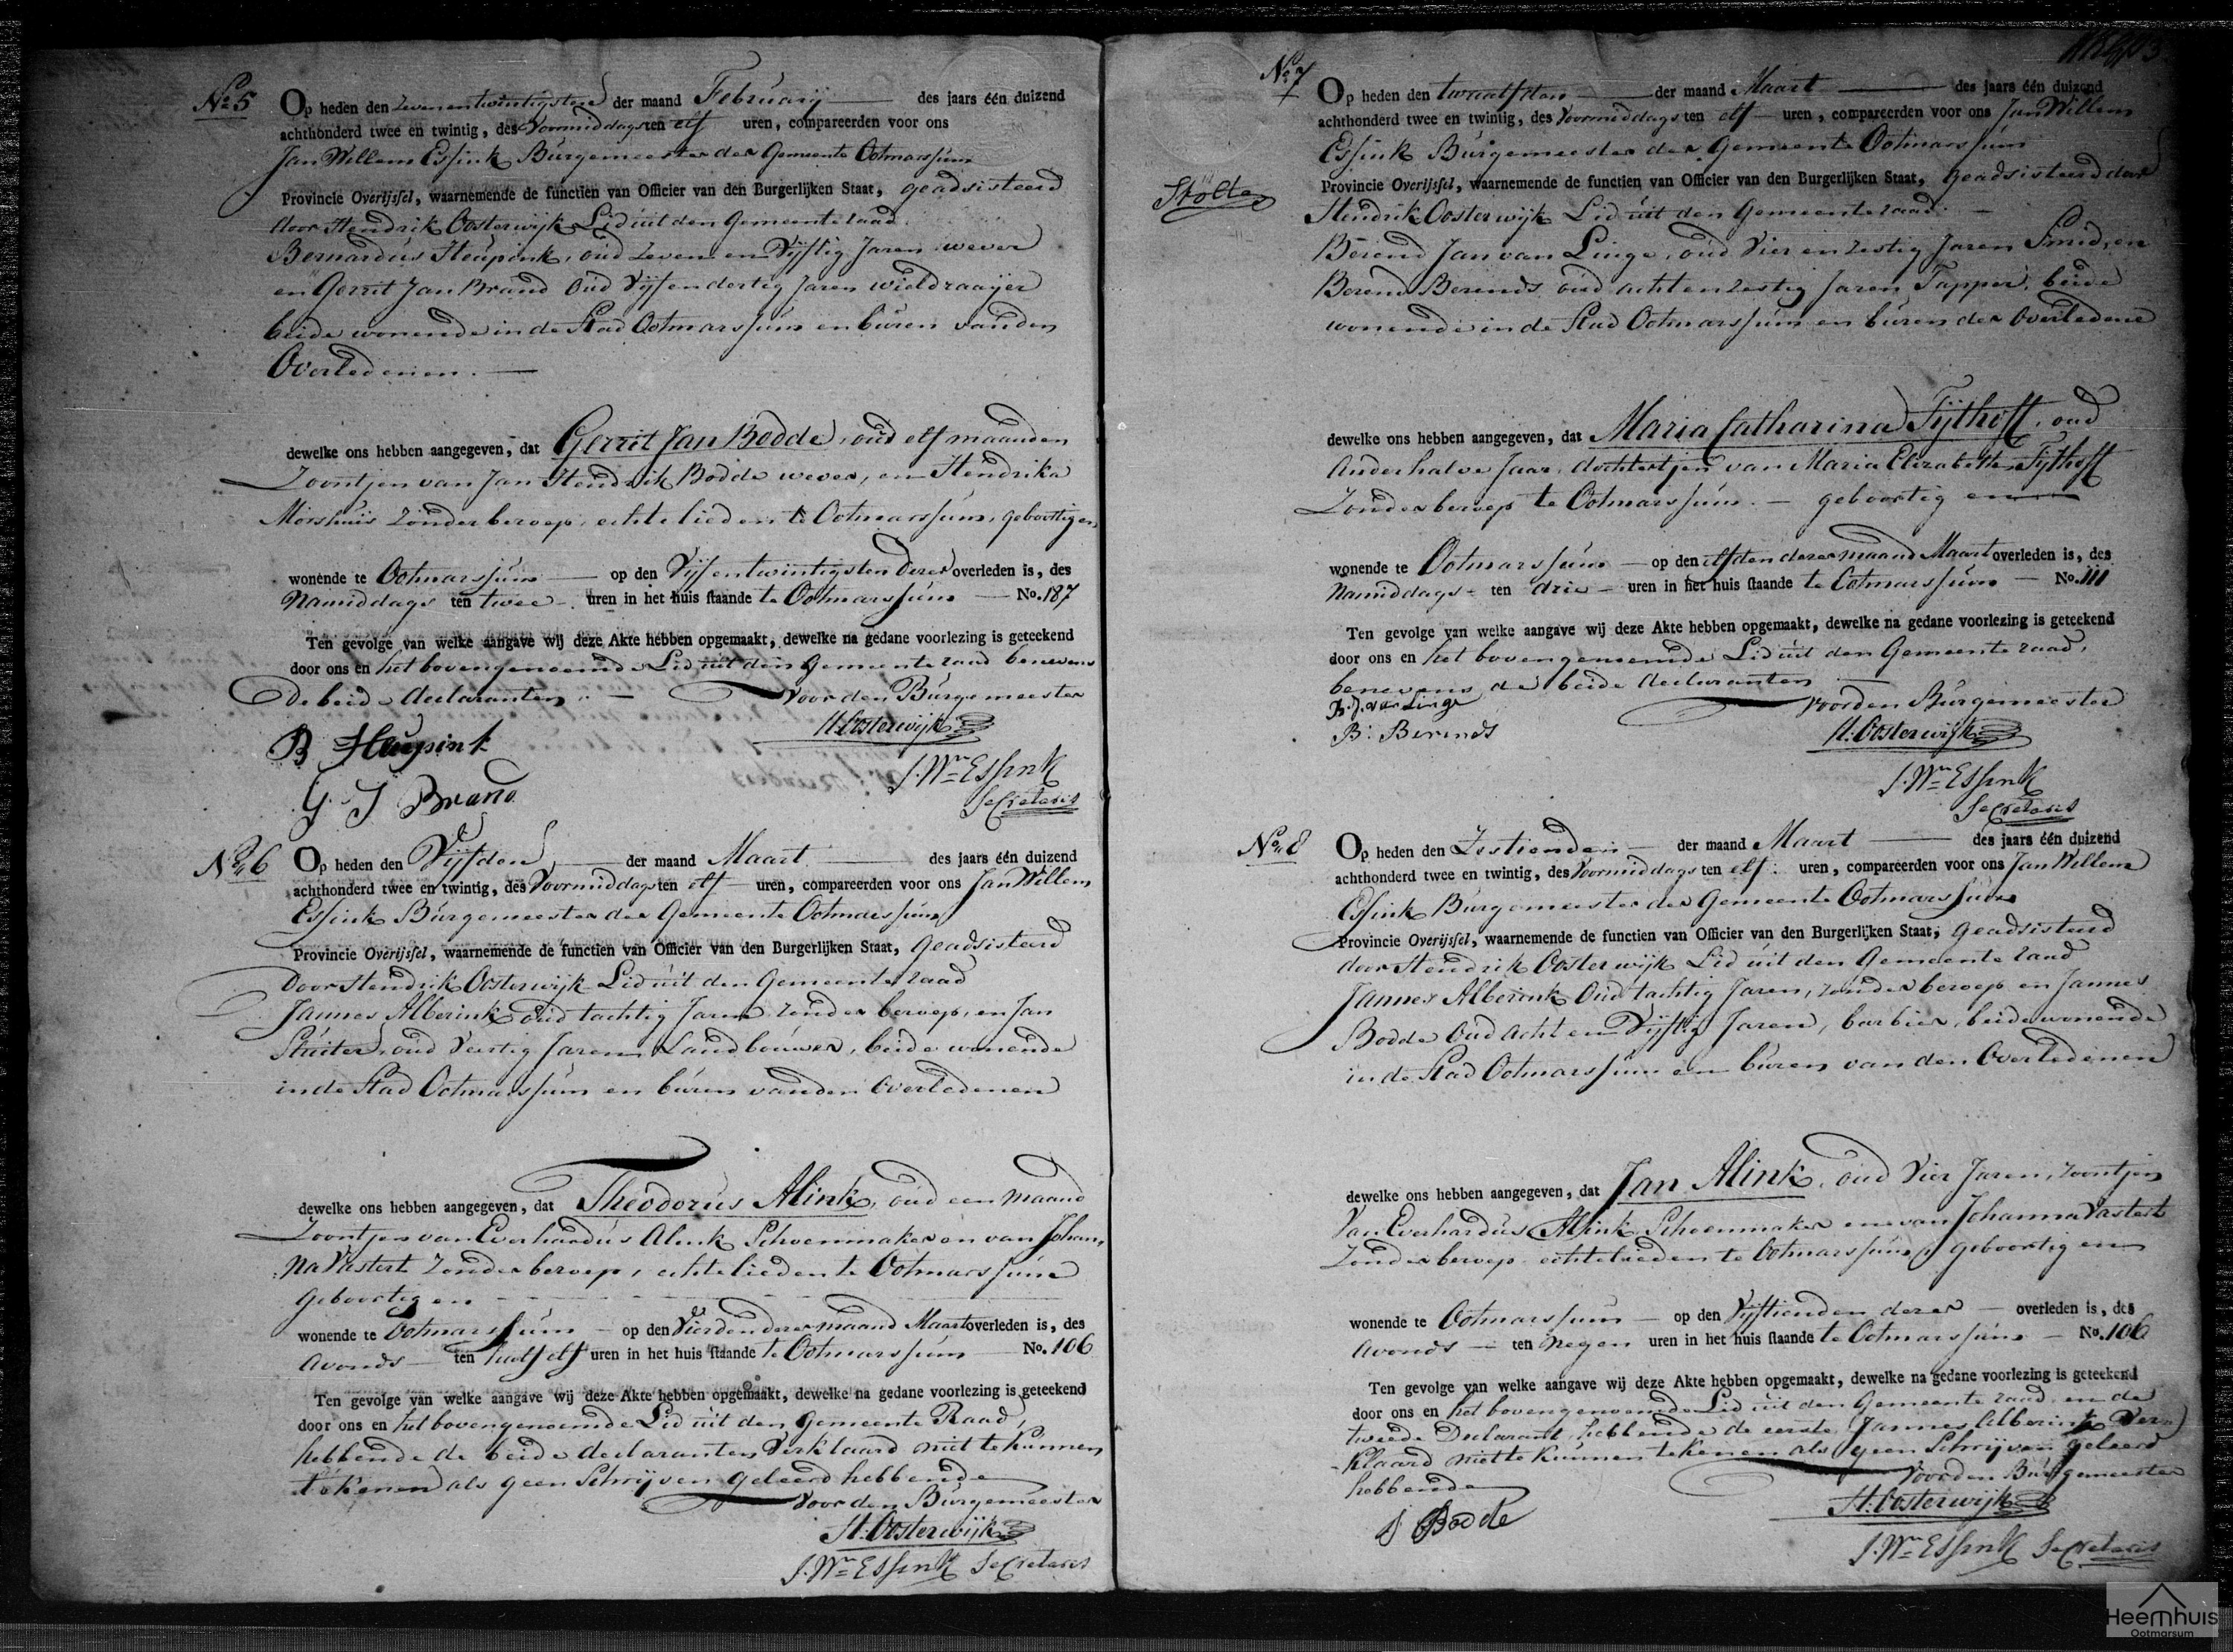 No 5
Op heden den Zevenentwintigsten der maand Februarij des jaars één duizend
achthonderd twee en twintig, des Voormiddags ten elf uren, compareerden voor ons
Jan Willem Essink Burgemeester der Gemeente Ootmarssum
Provincie Overijssel, waarnemende de functien van Officier van den Burgerlijken Staat, geadsisteerd
door Hendrik Oosterwijk Lid uit den Gemeente raad
Bernardus Heupink, oud Zeven en Vijftig Jaren wever
en Gerrit Jan Brand Oud Vijf en dertig Jaren wieldraaijer
beide wonende in de Stad Ootmarssum en buren van den
Overledenen.
dewelke ons hebben aangegeven, dat Gerrit Jan Bodde, oud elf maanden
Zoontjen van Jan Hendrik Bodde wever, en Hendrika
Morshuis Zonder beroep, echtelieden te Ootmarssum, geboortig en
wonende te Ootmarssum op den Vijfentwintigsten dezer overleden is, des
Namiddags ten twee uren in het huis staande te Ootmarssum No. 187
Ten gevolge van welke aangave wij deze Akte hebben opgemaakt, dewelke na gedane voorlezing is geteekend
door ons en het bovengenoemde Lid uit den Gemeente raad benevens
de beide declaranten.
Voor den Burgemeester
H. Oosterwijk
B Heupink
J. Wm Essink
Secretaris
G J Brand
No 6
Op heden den Vijfden der maand Maart des jaars één duizend
achthonderd twee en twintig, des Voormiddags ten elf uren, compareerden voor ons Jan Willem
Essink Burgemeester der Gemeente Ootmarssum
Provincie Overijssel, waarnemende de functien van Officier van den Burgerlijken Staat, geadsisteerd
Door Hendrik Oosterwijk Lid uit den Gemeente raad
Jannes Alberink Oud tachtig Jaren zonder beroep, en Jan
Sluiter, oud Veertig Jaren Landbouwer, beide wonende
in de Stad Ootmarssum en buren van den Overledenen
dewelke ons hebben aangegeven, dat Theodorus Alink, oud een maand
Zoontjen van Everhardus Alink Schoenmaker en van Johan,
na Vastert Zonder beroep, echtelieden te Ootmarssum
geboortig en
wonende te Ootmarssum op den Vierden dezer maand Maart overleden is, des
Avonds ten half elf uren in het huis staande te Ootmarssum No. 106
Ten gevolge van welke aangave wij deze Akte hebben opgemaakt, dewelke na gedane voorlezing is geteekend
door ons en het bovengenoemde Lid uit den Gemeente Raad,
hebbende de beide declaranten Verklaard niet te kunnen
tekenen als geen Schrijven geleerd hebbende
Voor den Burgemeester
H. Oosterwijk
J. Wm Essink Secretaris
No 7
Op heden den twaalfden der maand Maart des jaars één duizend
achthonderd twee en twintig, des Voormiddags ten elf uren, compareerden voor ons Jan Willem
Essink Burgemeester der Gemeente Ootmarssum
Provincie Overijssel, waarnemende de functien van Officier van den Burgerlijken Staat, geadsisteerd door
Hendrik Oosterwijk Lid uit den Gemeente raad.
Berend Jan van Linge, oud Vier en zestig Jaren Smid, en
Berend Berends oud acht en zestig Jaren Tapper, beide
wonende in de Stad Ootmarssum en buren der Overledene
dewelke ons hebben aangegeven, dat Maria Catharina Tijthoff, oud
Anderhalve Jaar, dochtertjen van Maria Elizabeth Tijthoff
Zonder beroep te Ootmarssum. geboortig en
wonende te Ootmarssum op den elfden dezer maand Maart overleden is, des
Namiddags ten drie uren in het huis staande te Ootmarssum No. 111
Ten gevolge van welke aangave wij deze Akte hebben opgemaakt, dewelke na gedane voorlezing is geteekend
door ons en het bovengenoemde Lid uit den Gemeente raad,
benevens de beide declaranten
B. J. van Linge
Voor den Burgemeester
B: Berends
H. Oosterwijk
J. Wm Essink
Secretaris
No 8
Op heden den Zestienden der maand Maart des jaars één duizend
achthonderd twee en twintig, des Voormiddags ten elf uren, compareerden voor ons Jan Willem
Essink Burgemeester der Gemeente Ootmarssum
Provincie Overijssel, waarnemende de functien van Officier van den Burgerlijken Staat, geadsisteerd
door Hendrik Oosterwijk Lid uit den Gemeente raad
Jannes Alberink Oud tachtig Jaren, zonder beroep en Jannes
Bodde Oud acht en Vijftig Jaren, barbier, beide wonende
in de Stad Ootmarssum en buren van den Overledenen
dewelke ons hebben aangegeven, dat Jan Alink, oud Vier Jaren, zoontjen
Van Everhardus Alink Schoenmaker en van Johanna Vastert
Zonder beroep echtelieden te Ootmarssum, geboortig en
wonende te Ootmarssum op den Vijftienden dezer overleden is, des
Avonds ten negen uren in het huis staande te Ootmarssum No. 106
Ten gevolge van welke aangave wij deze Akte hebben opgemaakt, dewelke na gedane voorlezing is geteekend
door ons en het bovengenoemde Lid uit den Gemeente raad en de
tweede Declarant, hebbende de eerste Jannes Alberink Ver-
klaard niet te kunnen tekenen als geen Schrijven geleerd
hebbende
Voor den Burgemeester
H. Oosterwijk
J Bodde
J. Wm Essink Secretaris
Heemhuis
Ootmarsum